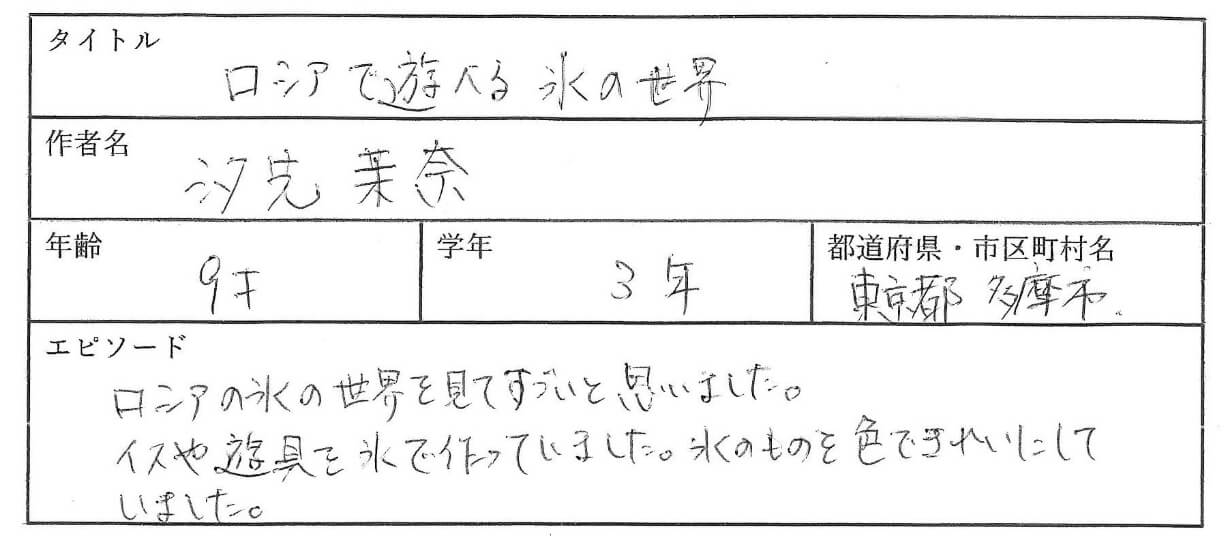 タイトル
ロシアで遊べる 氷の世界
作者名
汐先 茉奈
年齢
9才
学年
3年
都道府県・市区町村名
東京都 多摩市
エピソード
ロシアの氷の世界を見てすごいと思いました。
イスや遊具を氷で作っていました。氷のものを色できれいにして
いました。